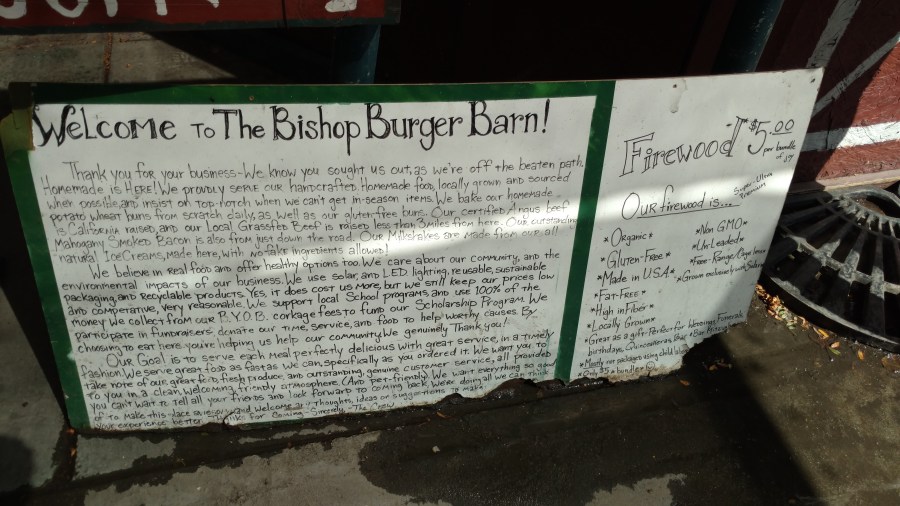 Welcome to The Bishop Burger Barn!
Thank you for your business - We know you sought us out, as we're off the beaten path.
Homemade is HERE! We proudly serve our handcrafted Homemade food, locally grown and sourced
when possible, and insist on top-notch when we can't get in-season items. We bake our homemade
potato wheat buns from scratch daily, as well as our gluten free buns. Our certified Angus beef
is California raised, and our Local Grassfed Beef is raised less than 3 miles from here. Our outstanding
Mahogany Smoked Bacon is also from just down the road. Our Milkshakes are made from our all
-natural Ice Creams, made here, with no fake ingredients allowed!
We believe in Real food and offer healthy options too. We care about our community, and the
environmental impacts of our business. We use solar, and LED lighting, reusable, sustainable
packaging, and recyclable products. Yes, it does cost us more, but we still keep our prices low
and comperative, very reasonable. We support local School programs, and use 100% of the
money we collect from our B.Y.O.B. corkage fees to fund our Scholarship Program. We
participate in fundraisers, donate our time, service, and food to help worthy causes. By
choosing to eat here you're helping us help our community. We genuinely Thank you!
Our Goal is to serve each meal perfectly delicious with great service, in a timely
fashion. We serve great food as fast as we can, specifically as you ordered it. We want you to
take note of our great food, fresh produce, and outstanding, genuine customer service, all provided
to you in a clean, welcoming, friendly atmosphere. (And pet-friendly). We want everything so good
you can't wait to tell all your friends and look forward to coming back. We're doing all we can think
of to make this place awesome and welcome any thoughts, ideas or suggestions to make
your experience better. Thanks for Coming - Sincerely, -The Crew
Firewood $5.00
per bundle
of
Our firewood is...
Super-Ultra
Premium
*Organic*
*Gluten-Free*
*Made in U.S.A.*
*Fat-Free*
*High in Fiber*
*Locally Grown*
*Non GMO*
*UnLeaded*
*Free-Range/Cage
*Grown exclusively with
*Great as a gift-Perfect for Weddings, Funerals
birthdays, Quinceañeras, Bar + Bas
*Mostly our packages using child labor
*Only $5 a bundle